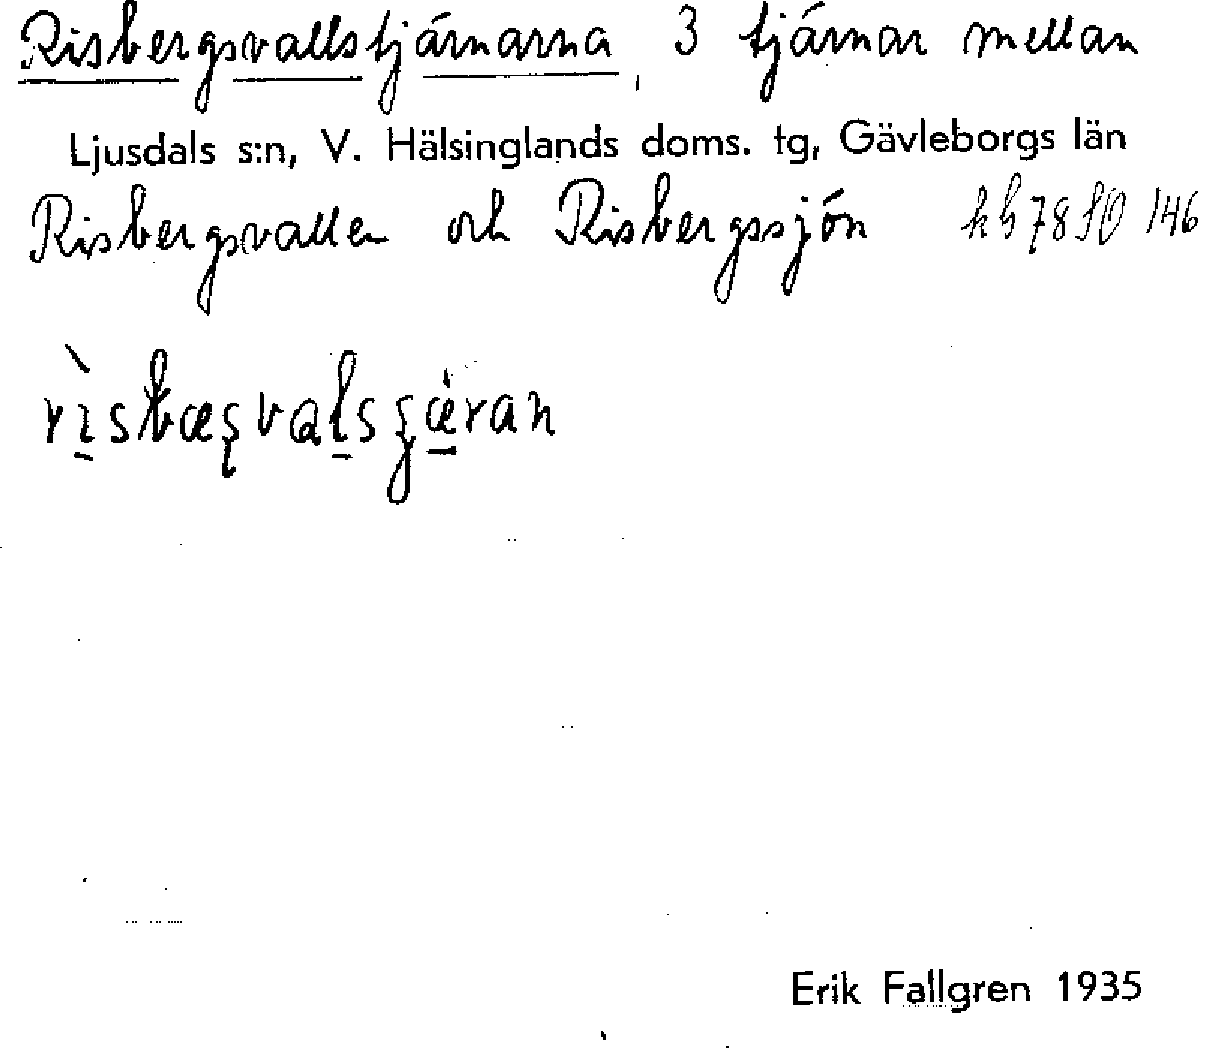 Risbergsvallstjärnarna, 3 tjärnar mellan
Ljusdals s:n, V. Hälsinglands doms. tg, Gävleborgs län
Risbergsvallen och Risbergssjön
Erik Fallgren 1935